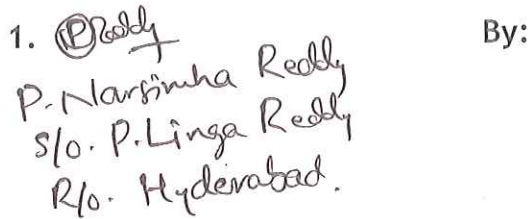 1. P Reddy By:
P. Narsimha Reddy
S/o. P. Linga Reddy
R/o. Hyderabad.